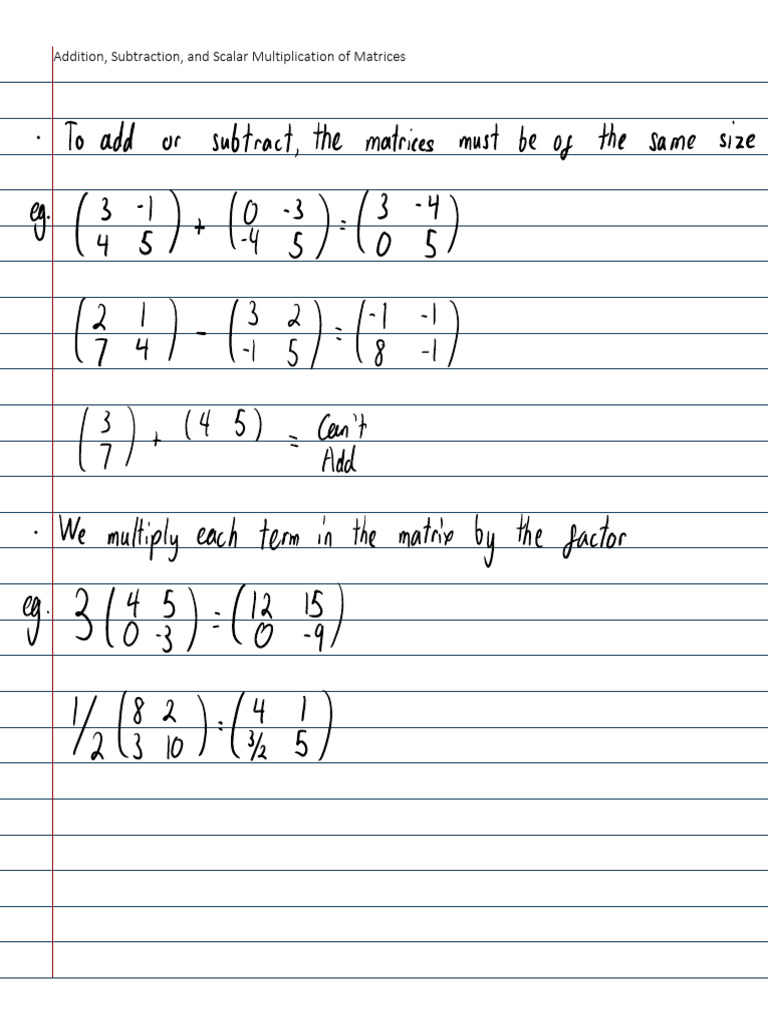 Addition, Subtraction, and Scalar Multiplication of Matrices
· To add or subtract, the matrices must be of the same size
eg. (3 -1) + (0 -3) = (3 -4)
(4 5) (-4 5) (0 5)
(2 1) - (3 2) = (-1 -1)
(7 4) (-1 5) (8 -1)
(3) + (4 5) = Can't
(7) Add
· We multiply each term in the matrix by the factor
eg. 3 (4 5) = (12 15)
(0 -3) (0 -9)
1/2 (8 2) = (4 1)
(3 10) (3/2 5)